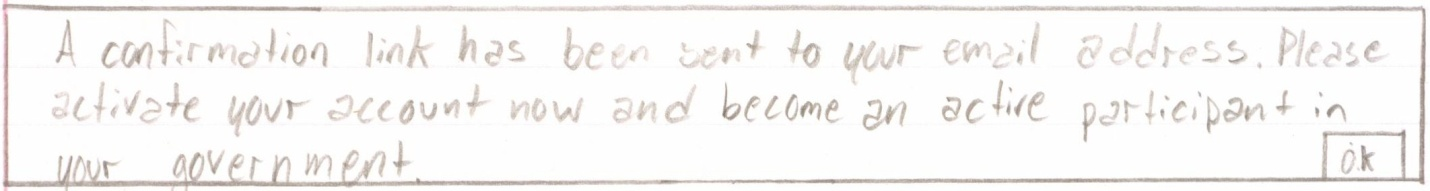 A confirmation link has been sent to your email address. Please
activate your account now and become an active participant in
your government.
ok